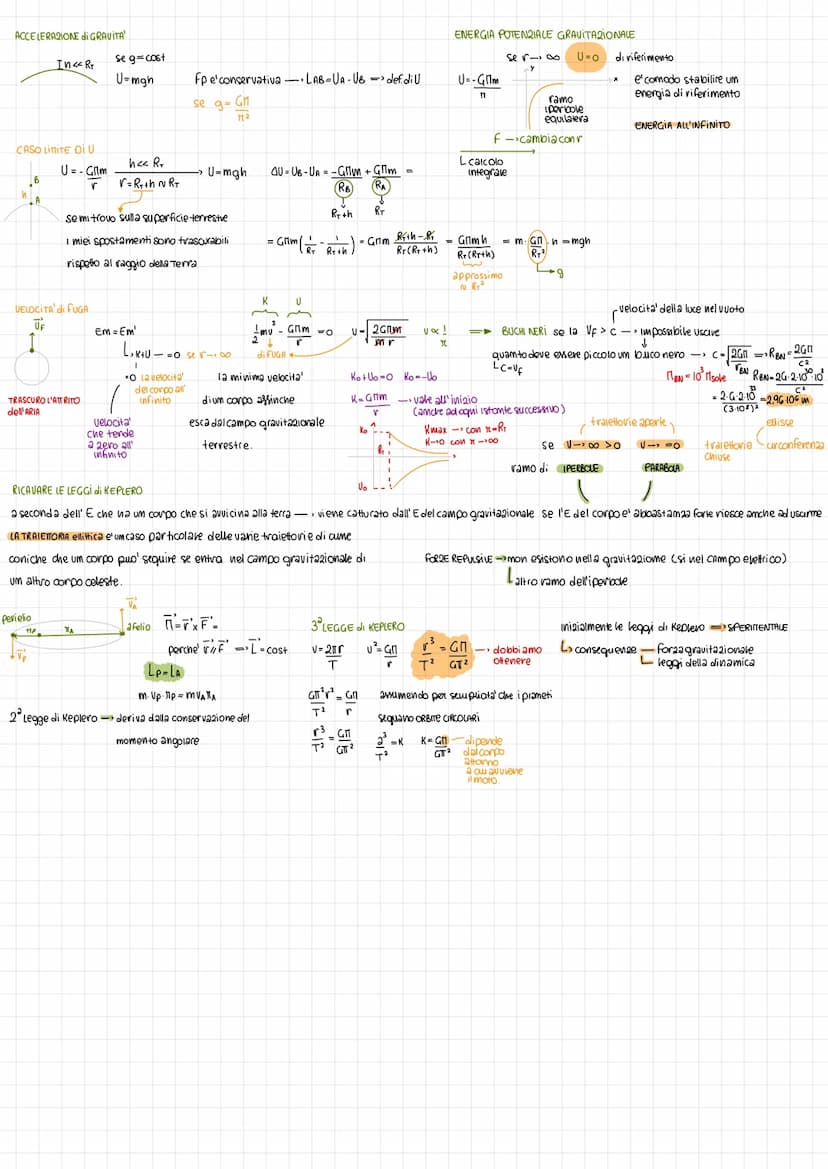 ACCELERAZIONE di GRAVITA'
In<< R_T
se g=cost
U=mgh
Fp e' conservativa —→ L_AB=U_A-U_B => def di U
se g = GM/r²
ENERGIA POTENZIALE GRAVITAZIONALE
se r→∞ U=0 di riferimento
U=-GMm/r
y
x
ramo
iperbole
equilatera
e' comodo stabilire un
energia di riferimento
ENERGIA ALL'INFINITO
F —→ cambia con r
L calcolo
integrale
CASO LIMITE DI U
B
h
A
U = -GMm/r
h<< R_T
r=R_T+h ~ R_T
U=mgh
ΔU=U_B-U_A = -GMm/R_B + GMm/R_A =
R_T+h
R_T
se mi trovo sulla superficie terrestre
i miei spostamenti sono trascurabili
rispetto al raggio della Terra
= GMm(1/R_T - 1/(R_T+h)) = GMm (R_T+h-R_T)/(R_T(R_T+h)) = GMmh/(R_T(R_T+h)) = m·GM/R_T²·h = mgh
approssimo
~ R_T²
g
VELOCITA' di FUGA
V_F
Em=Em'
K+U —→ =0 se r→∞
=0 la velocita'
del corpo all'
infinito
TRASCURO L'ATTRITO
dell'ARIA
velocità
che tende
a zero all'
infinito
K U
1/2 mv² - GMm/r =0
di FUGA
v=√(2GMm/(m r))
v∝1/r
la minima velocita'
di un corpo affinche
esca dal campo gravitazionale
terrestre.
K₀+U₀=0 K₀=-U₀
K=GMm/r —→ vale all'inizio
(anche ad ogni istante successivo)
K₀
R_T
U₀
Kmax —→ con r=R_T
K→0 con r→∞
velocita' della luce nel vuoto
=> BUCHI NERI se la V_F > c —→ impossibile uscire
quanto deve essere piccolo un buco nero —→ c=√(2GM/r_BN) => R_BN=2GM/c²
c=V_F
M_BN = 10³ M_sole
R_BN=2G·2·10³⁰·10³/c²
= 2·G·2·10³³/(3·10⁸)² = 2,96·10⁶ m
traiettorie aperte
se U→∞ >0 U→ =0
ramo di IPERBOLE PARABOLA
traiettorie
chiuse
ellisse
circonferenza
RICAVARE LE LEGGI di KEPLERO
a seconda dell' E che ha un corpo che si avvicina alla terra —→ viene catturato dall'E del campo gravitazionale se l'E del corpo e' abbastanza forte riesce anche ad uscirne
LA TRAIETTORIA ellittica e' un caso particolare delle varie traiettorie di curve
coniche che un corpo puo' seguire se entra nel campo gravitazionale di
un altro corpo celeste.
FORZE REPULSIVE → non esistono nella gravitazione (si nel campo elettrico)
altro ramo dell'iperbole
V_A
perielio
r_P
r_A
afelio
V_P
M=r×F=
perche' r//F => L=cost
L_P=L_A
m·V_P·r_P=mV_A r_A
2ª Legge di Keplero → deriva dalla conservazione del
momento angolare
3ª LEGGE di KEPLERO
v=2πr/T
v²=GM/r
r³/T² = GM/Gπ²
—→ dobbiamo
ottenere
Gπ²r²/T² = GM/r
assumendo per semplicita' che i pianeti
seguano ORBITE CIRCOLARI
r³/T² = GM/Gπ²
a³/T² =K
K=GM/Gπ²
dipende
dal corpo
attorno
a cui avviene
il moto.
inizialmente le leggi di Keplero => SPERIMENTALE
consequenze — forza gravitazionale
leggi della dinamica